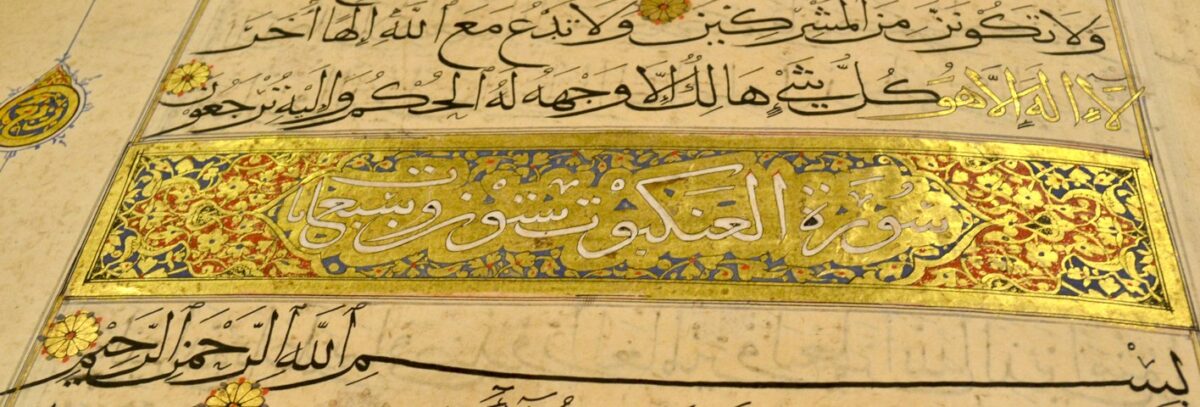 وَلَا تَكُونَنَّ مِنَ ٱلْمُشْرِكِينَ وَلَا تَدْعُ مَعَ ٱللَّهِ إِلَٰهًا آخَرَ
لَا إِلَٰهَ إِلَّا هُوَ كُلُّ شَيْءٍ هَالِكٌ إِلَّا وَجْهَهُ لَهُ ٱلْحُكْمُ وَإِلَيْهِ تُرْجَعُونَ
سُورَةُ العَنكَبُوْت سِتُّوْنَ وتِسْع ايات
بِسْمِ ٱللَّهِ ٱلرَّحْمَٰنِ ٱلرَّحِيمِ